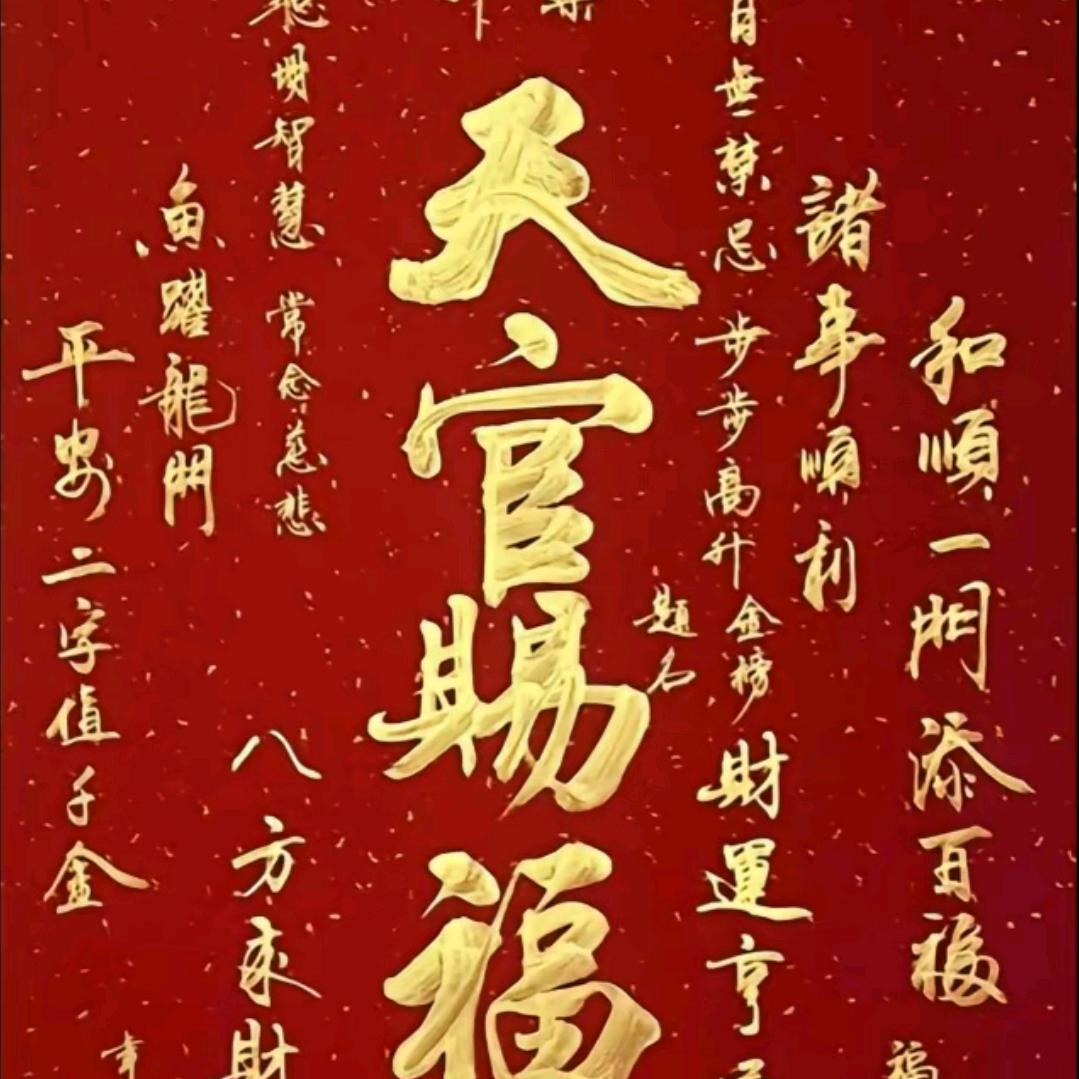 和順一門添百福
福
諸事順利
自無禁忌
步步高升
金榜
題名
財運亨
天官賜福
聰明智慧
常念慈悲
八方來財
魚躍龍門
平安二字值千金